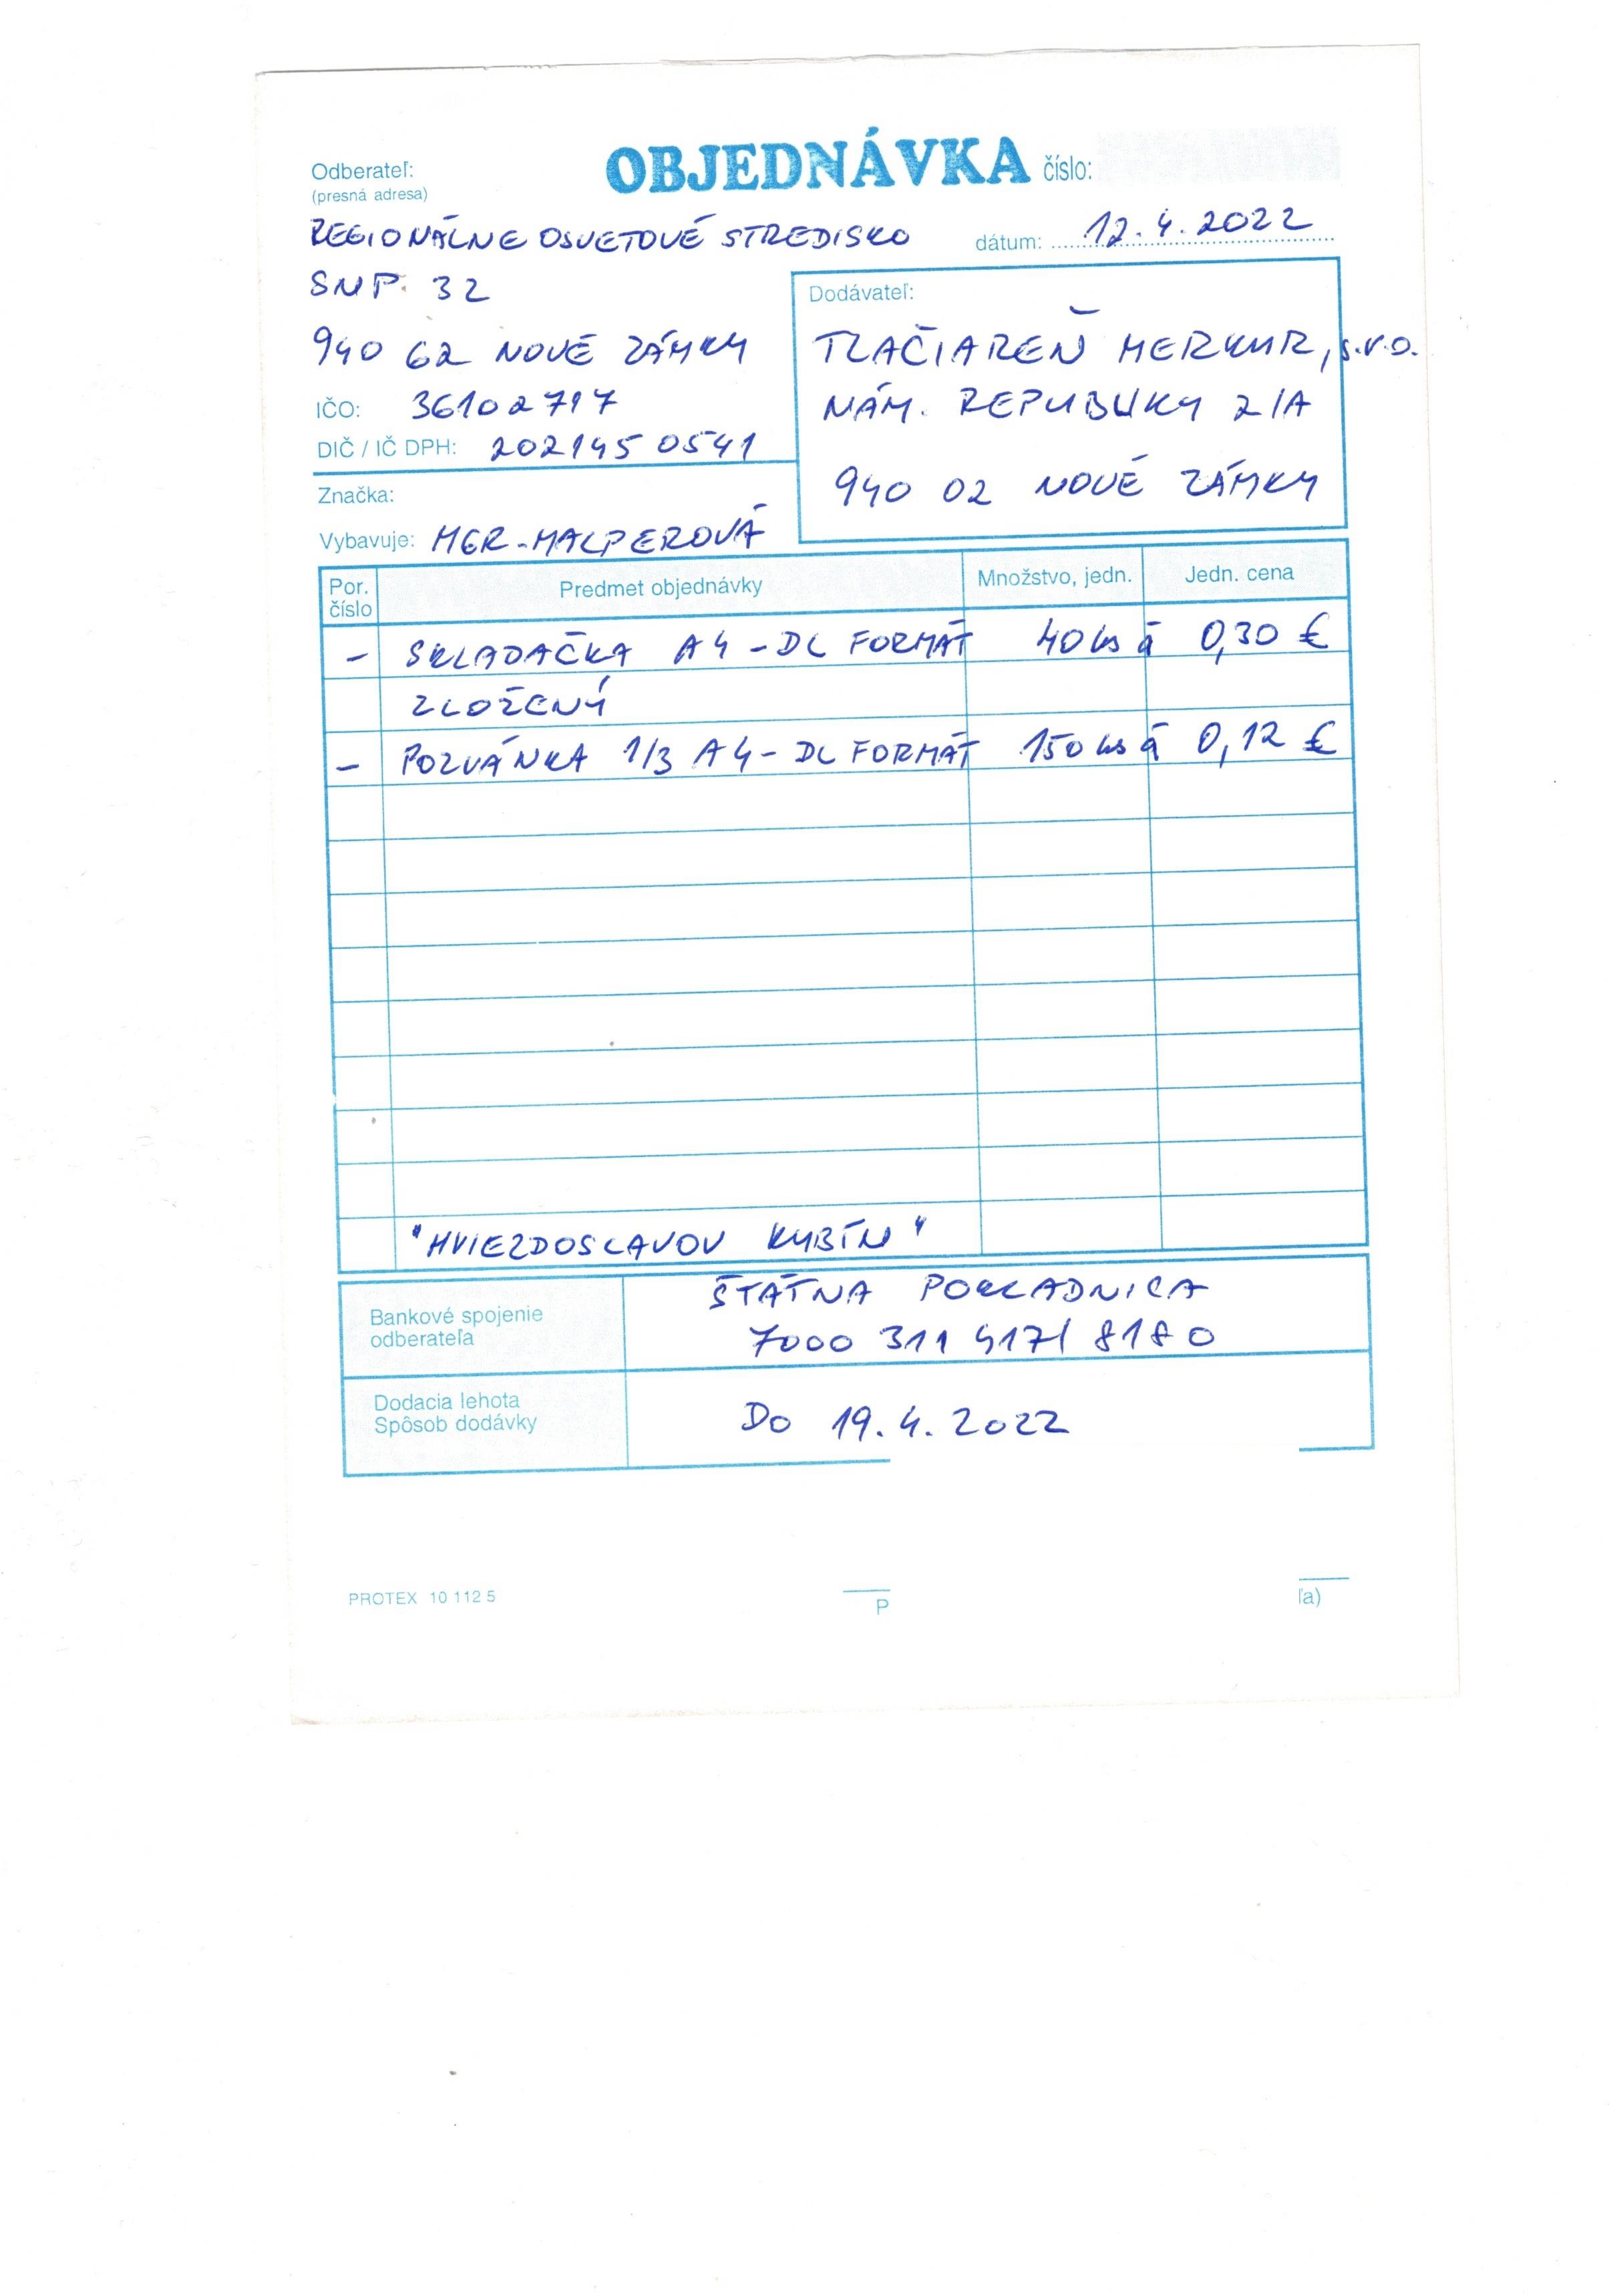 OBJEDNÁVKA číslo:
Odberateľ:
(presná adresa)
REGIONÁLNE OSVETOVÉ STREDISKO
dátum: 12.4.2022
SNP 32
940 62 NOVÉ ZÁMKY
IČO: 36102717
DIČ / IČ DPH: 202145 0541
Značka:
Vybavuje: MGR. MALPEROVÁ
Dodávateľ:
TLAČIAREŇ MERKUR, s.r.o.
NÁM. REPUBLIKY 2/A
940 02 NOVÉ ZÁMKY
Por. číslo Predmet objednávky Množstvo, jedn. Jedn. cena
- SKLADAČKA A4 - DL FORMÁT 40 ks á 0,30 €
ZLOŽENÝ
- POZVÁNKA 1/3 A4 - DL FORMÁT 150 ks á 0,12 €
"HVIEZDOSLAVOV KUBÍN"
Bankové spojenie
odberateľa
ŠTÁTNA POKLADNICA
7000 311 417/ 8180
Dodacia lehota
Spôsob dodávky
DO 19.4.2022
PROTEX 10 112 5
P
ľa)